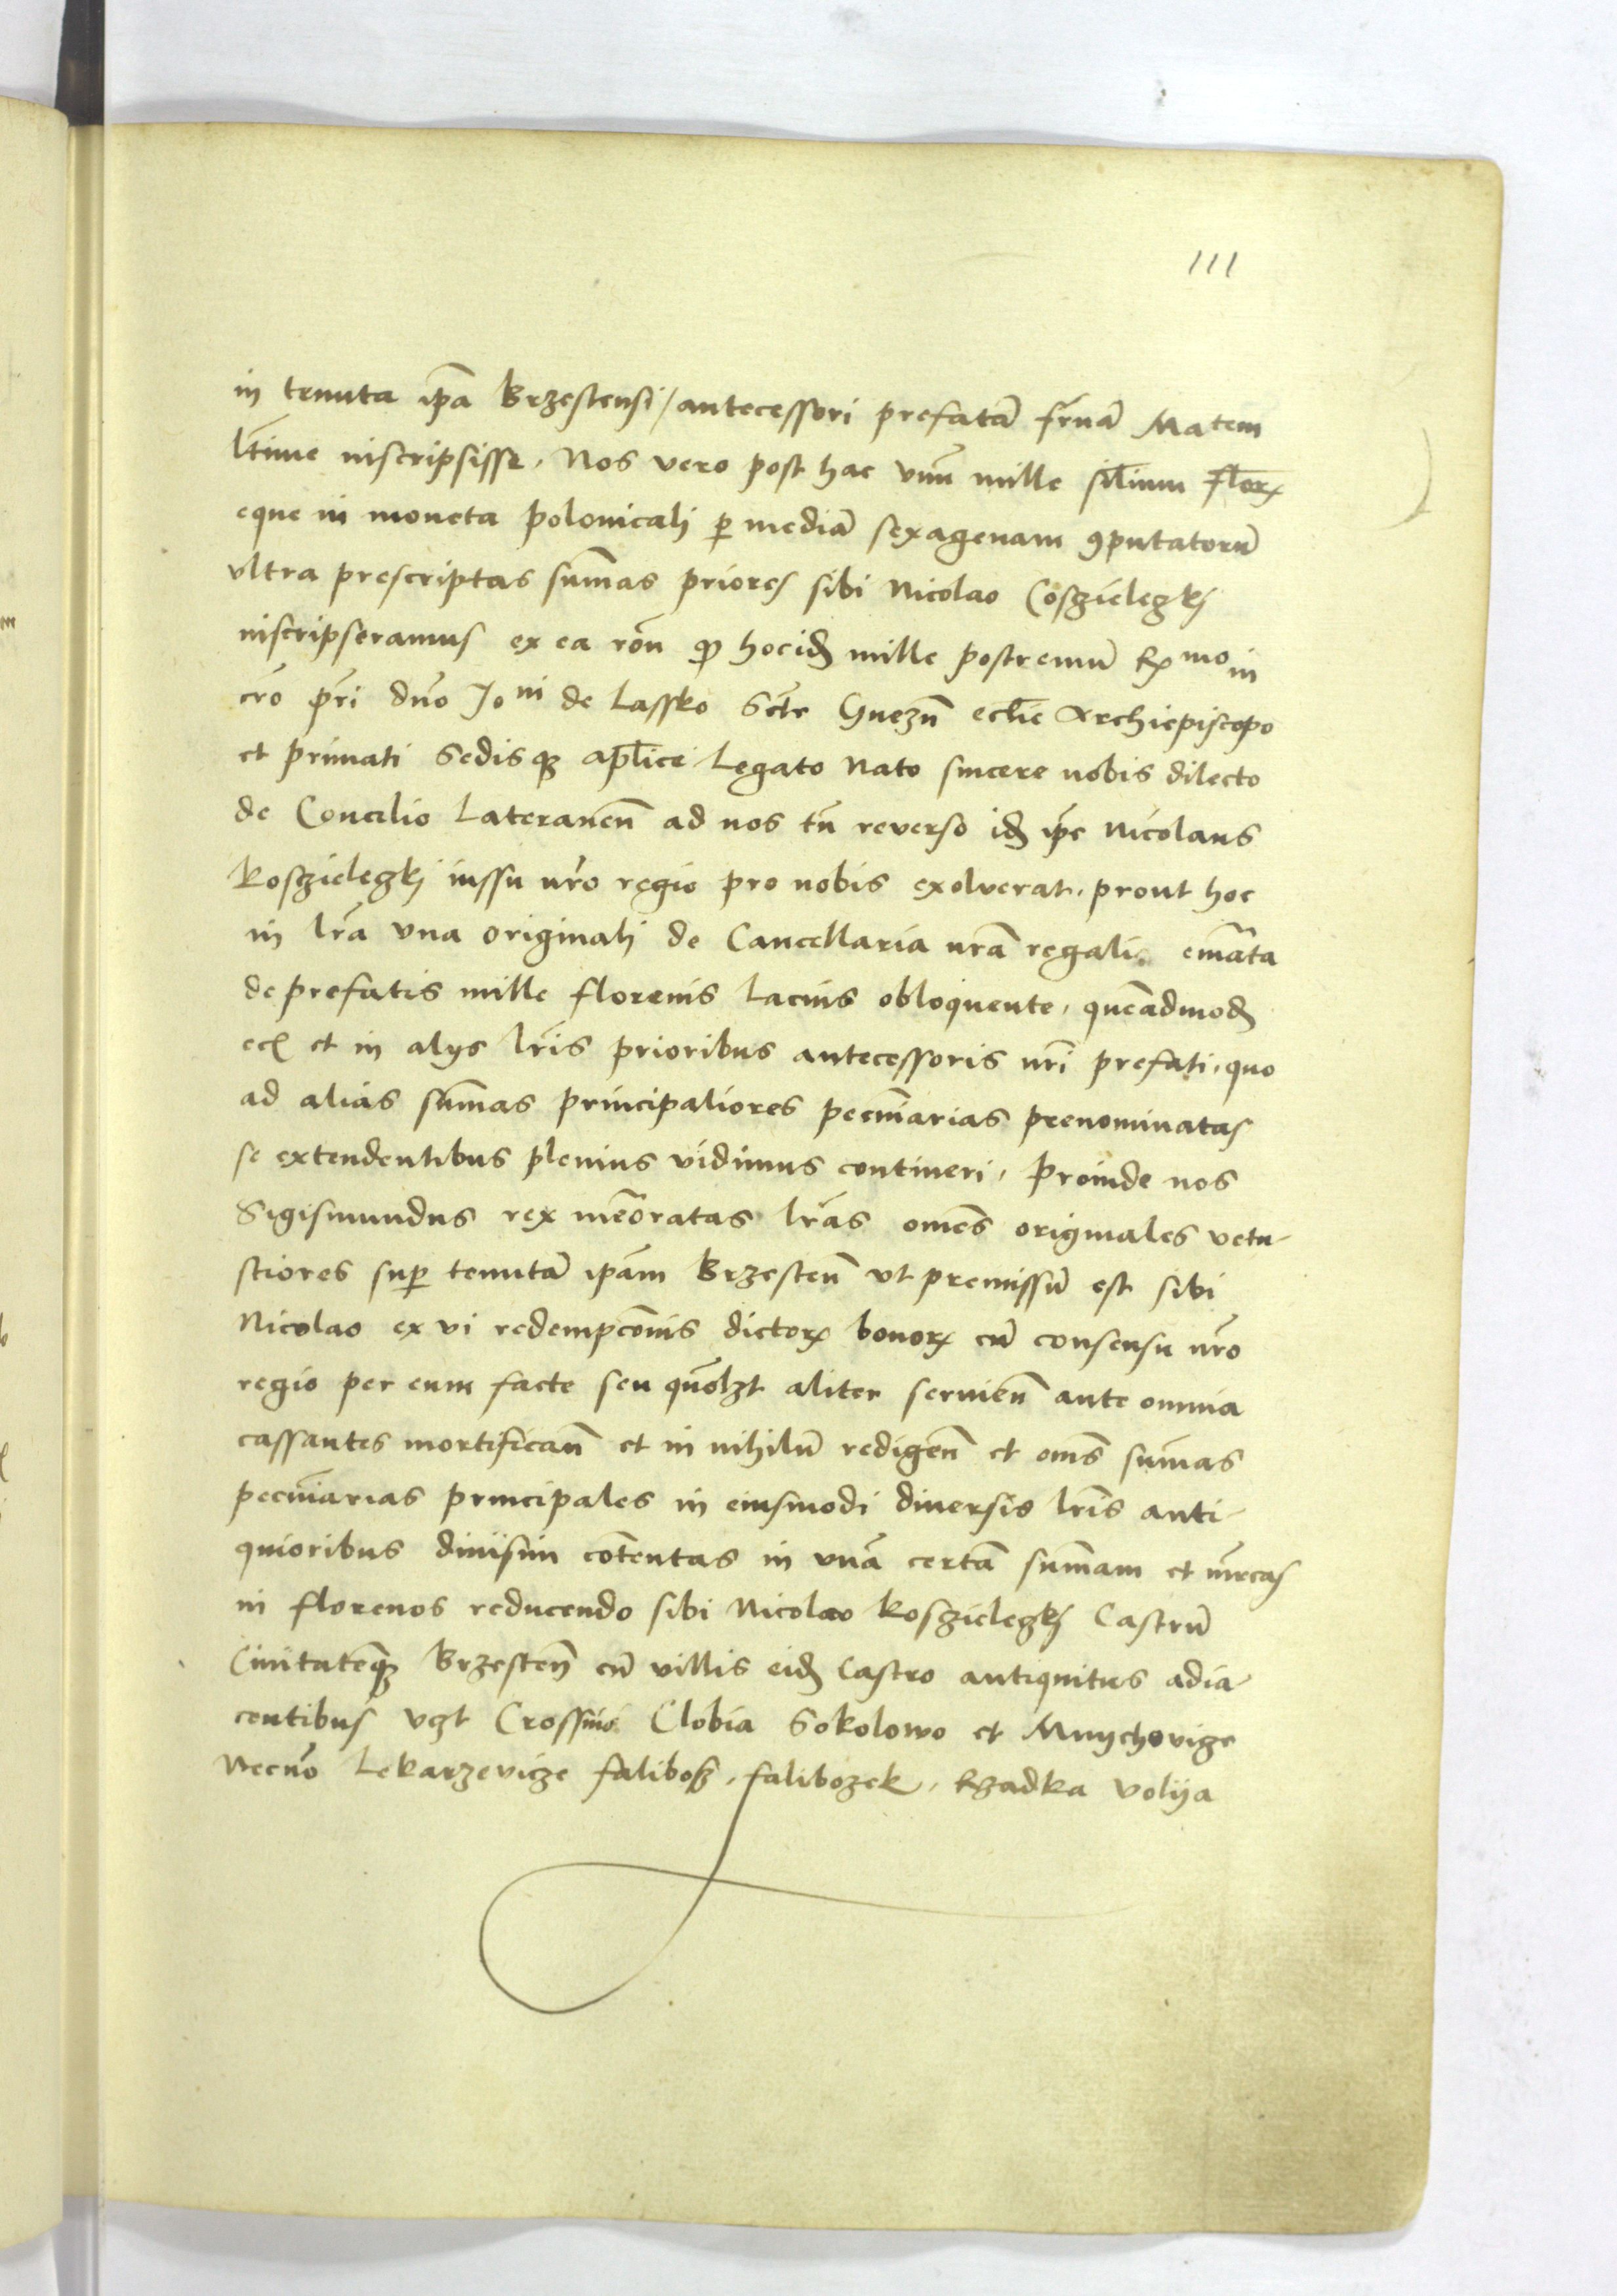 111
in tenuta ip̃a Brzestensi / antecessori prefatã fr̃nã Matem
l̃time inscripsisse, Nos vero post hac vnũ mille sil̃ium flor̃
eque in moneta polonicali ꝑ mediã sexagenam ꝯputatorũ
vltra prescriptas sum̃as priores sibi Nicolao Cosczieleczkj
inscripseramus ex ea rõn ꝙ hocidẽ mille postremũ Rx mo in
cr̃o pr̃i dño Jo ni de Lassko Sctẽ Gnezñ eccl̃ie Archiepiscopo
et primati Sedisqꝫ apl̃ice Legato Nato sincere nobis dilecto
de Concilio Lateraneñ ad nos tñ reverso idẽ ip̃e Nicolaus
Kosczieleczkj iussu nr̃o regio pro nobis exolverat, prout hoc
in lr̃a vna originali de Cancellaria nr̃a regali emãta
de prefatis mille florenis lacius obloquente, quẽadmodũ
eciã et in alys lr̃is prioribus antecessoris nr̃i prefati, quo
ad alias sum̃as principaliores pecũiarias prenominatas
se extendentibus plenius vidimus contineri, Proinde nos
Sigismundus rex mem̃oratas lr̃as omẽs originales vetu-
stiores suꝑ tenutã ipãm Brzesteñ vt premissũ est sibi
Nicolao ex vi redempcõnis dictorꝝ bonorꝝ cũ consensu nr̃o
regio per eum facte seu quõlꝫt aliter servieñ ante omnia
cassantes mortificañ et in nihilũ redigeñ et om̃s sum̃as
pecũiarias principales in eiusmodi diversis lr̃is anti-
quioribus divisim cõtentas in vnã certã sum̃am et mr̃cas
in florenos reducendo sibi Nicolao Kosczieleczkj Castrũ
Civitatẽqꝫ Brzesteñ cũ villis eidẽ Castro antiquitus adia-
centibus vꝫt Crossnio Clobia Sokolowo et Mnychovige
Necnõ Lekarzevicze falibosz, falibozek, Rzadka volija